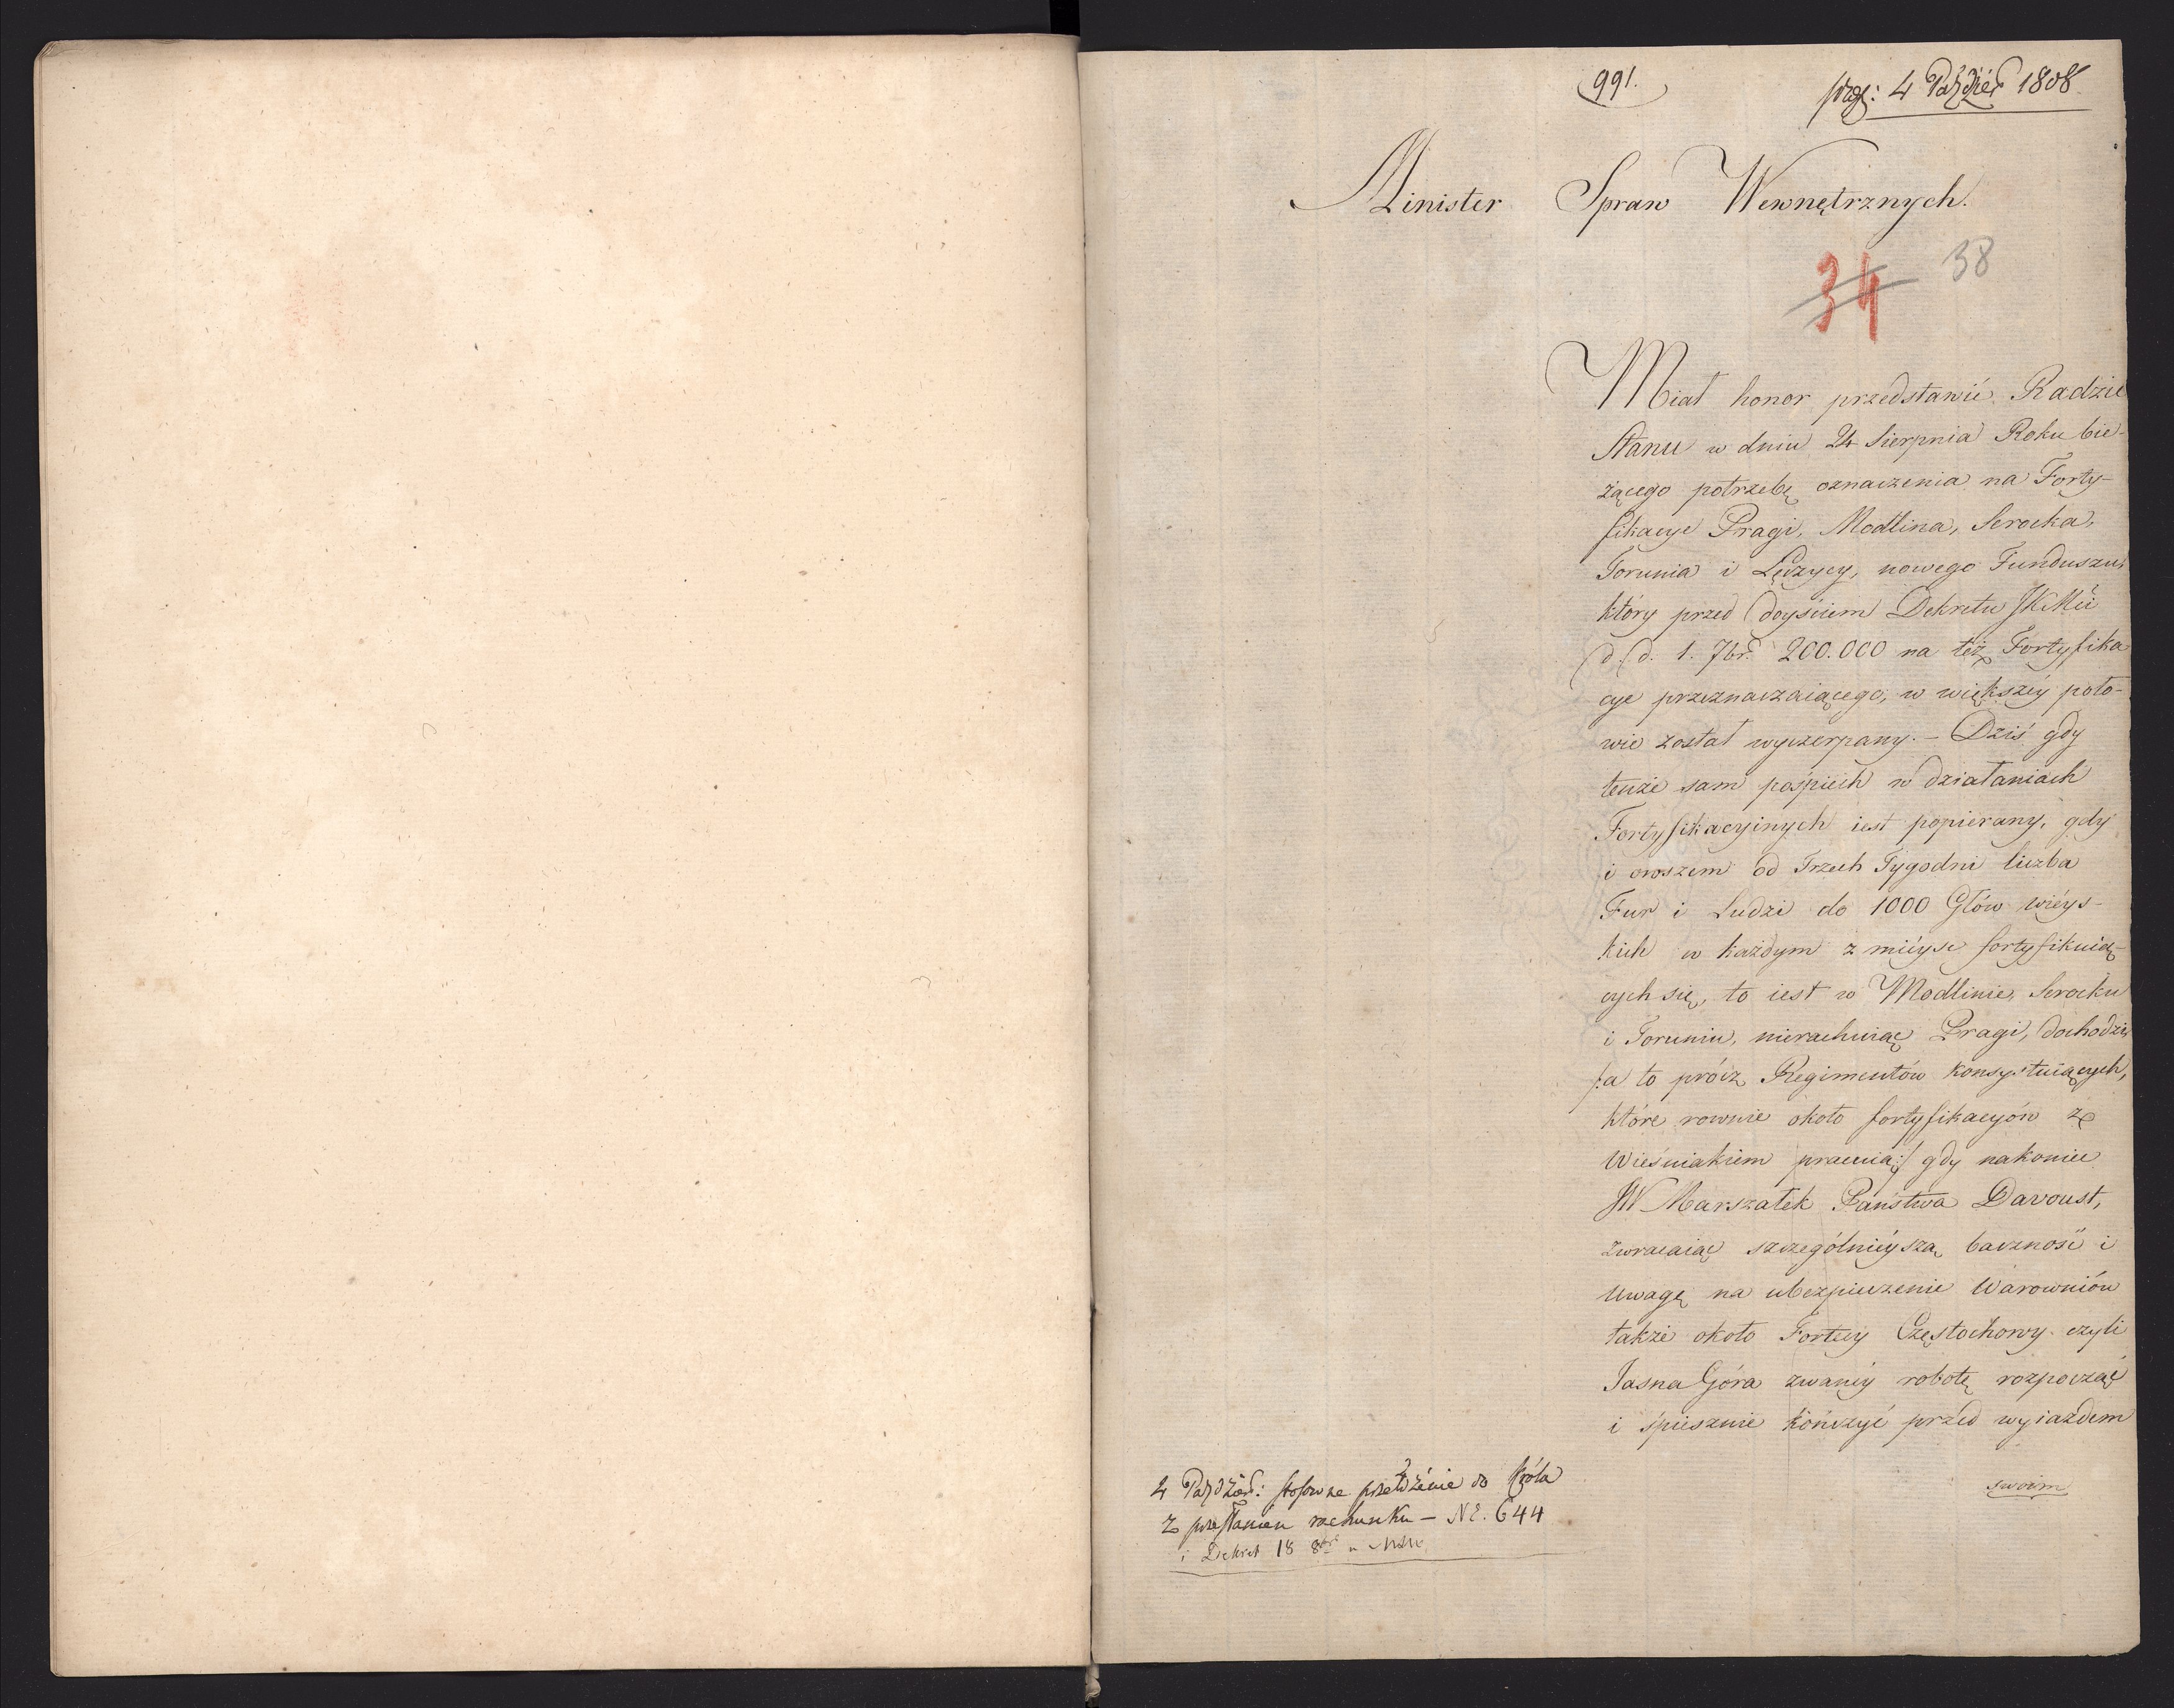 991.
4 Paździer 1808
Minister Spraw Wewnętrznych.
34 38
Miał honor przedstawić Radzie
Stanu w dniu 24 Sierpnia Roku bie-
żącego potrzebę oznaczenia na Forty-
fikacye Pragi, Modlina, Serocka,
Torunia i Łęczycy, nowego Funduszu,
który przed doyściem Dekretu JKMci
d. d. 1. 7br. 200.000 na też Fortyfika
cye przeznaczaiącego, w większéy poło-
wie został wyczerpany. – Dziś gdy
tenże sam pośpiech w działaniach
Fortyfikacyinych iest popierany, gdy
i owszem od Trzech Tygodni liczba
Fur i Ludzi do 1000 Głów wieys-
kich w każdym z mieysc fortyfikuią-
cych się, to iest w Modlinie, Serocku
i Toruniu, nierachuiąc Pragi, dochodzi,
/:a to prócz Regimentów konsystuiących,
które rownie około fortyfikacyów z
Wieśniakiem pracuią:/ gdy nakoniec
JW Marszałek Państwa Davoust,
zwracaiąc szczególnieyszą baczność i
uwagę na ubezpieczenie Warowniów
także około Fortecy Częstochowy czyli
Jasna Góra zwanéy robotę rozpocząć
i śpiesznie kończyć przed wyiazdem
swoim
4 Paźdźier: stosowne przełożenie do Króla
z przesłaniem rachunku – N⁰. 644
i Dekret 18 8br